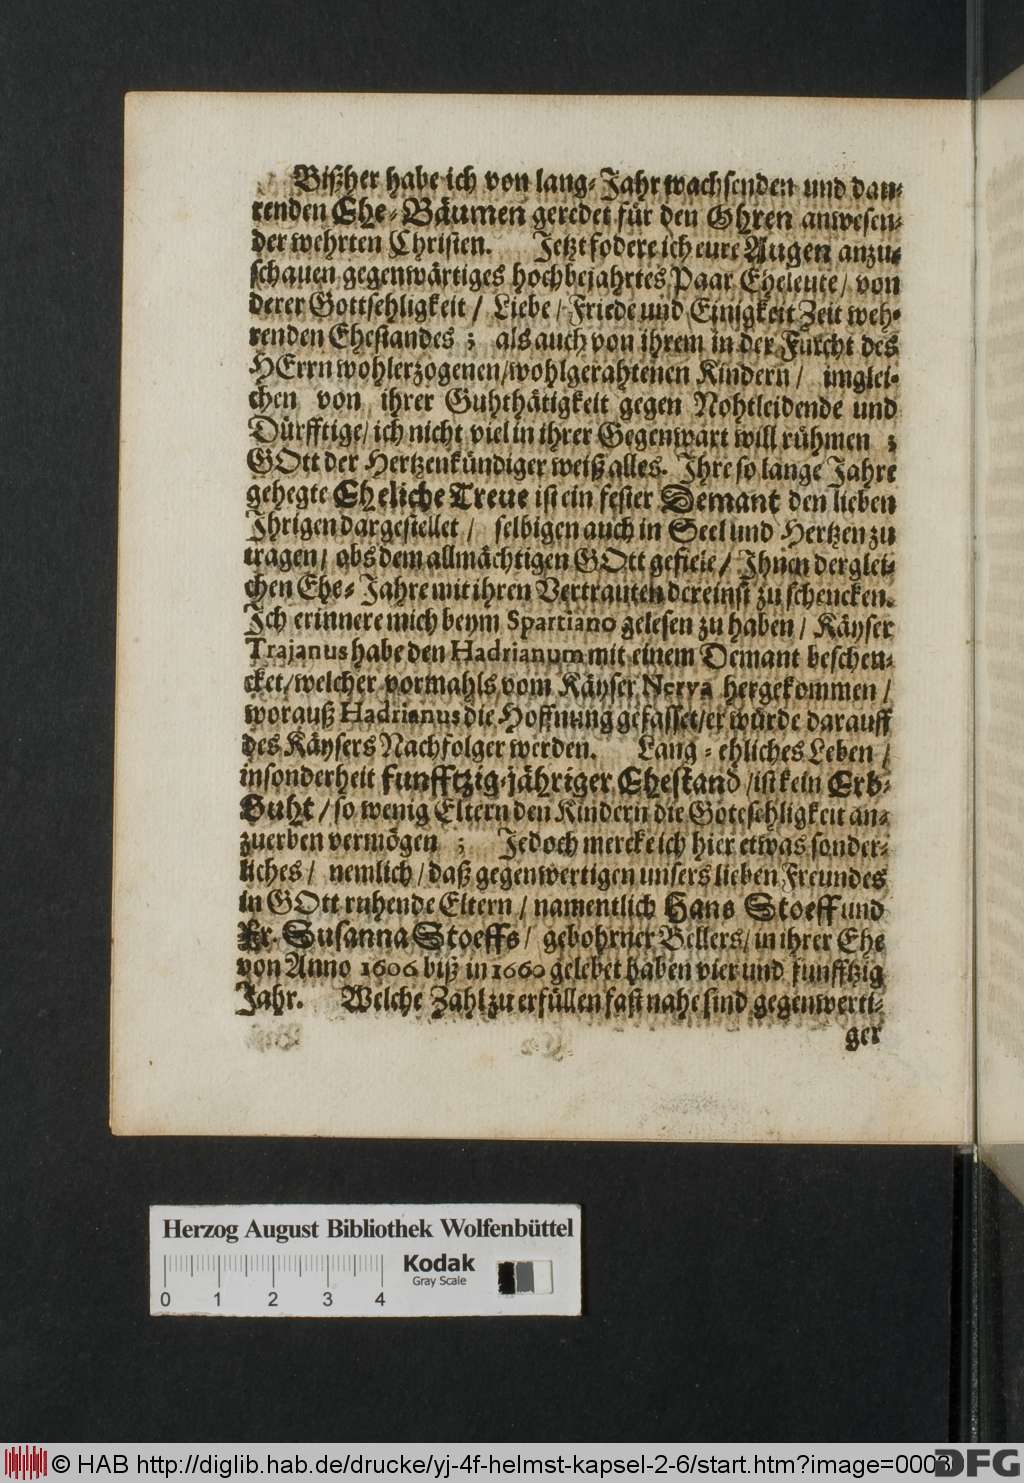 Bißher habe ich von lang-Jahr wachsenden und dau-
renden Ehe-Bäumen geredet für den Ohren anwesen-
der wehrten Christen. Jetzt fodere ich eure Augen anzu-
schauen gegenwärtiges hochbejahrtes Paar Eheleute/ von
derer Gottsehligkeit/ Liebe/ Friede und Einigkeit Zeit weh-
renden Ehestandes; als auch von ihrem in der Furcht des
HErrn wohlerzogenen/ wohlgerahtenen Kindern/ imglei-
chen von ihrer Guhthätigkeit gegen Nohtleidende und
Dürfftige/ ich nicht viel in ihrer Gegenwart will rühmen;
GOtt der Hertzenkündiger weiß alles. Ihre so lange Jahre
gehegte Eheliche Treue ist ein fester Demant den lieben
Ihrigen dargestellet/ selbigen auch in Seel und Hertzen zu
tragen/ obs dem allmächtigen GOtt gefiele/ Ihnen derglei-
chen Ehe-Jahre mit ihren Vertrauten dereinst zu schencken.
Ich erinnere mich beym Spartiano gelesen zu haben/ Käyser
Trajanus habe den Hadrianum mit einem Demant beschen-
cket/ welcher vormahls vom Käyser Nerva hergekommen/
worauß Hadrianus die Hoffnung gefasset/ er würde darauff
des Käysers Nachfolger werden. Lang-ehliches Leben/
insonderheit funfftzig-jähriger Ehestand/ ist kein Erb-
Guht/ so wenig Eltern den Kindern die Gottsehligkeit an-
zuerben vermögen; Jedoch mercke ich hier etwas sonder-
liches/ nemlich/ daß gegenwertigen unsers lieben Freundes
in GOtt ruhende Eltern/ namentlich Hans Stoeff und
Fr. Susanna Stoeffs/ gebohrner Bellers/ in ihrer Ehe
von Anno 1606 biß in 1660 gelebet haben vier und funfftzig
Jahr. Welche Zahl zu erfüllen fast nahe sind gegenwerti-
ger
Herzog August Bibliothek Wolfenbüttel
Kodak
Gray Scale
0 1 2 3 4
© HAB http://diglib.hab.de/drucke/yj-4f-helmst-kapsel-2-6/start.htm?image=0003
DFG